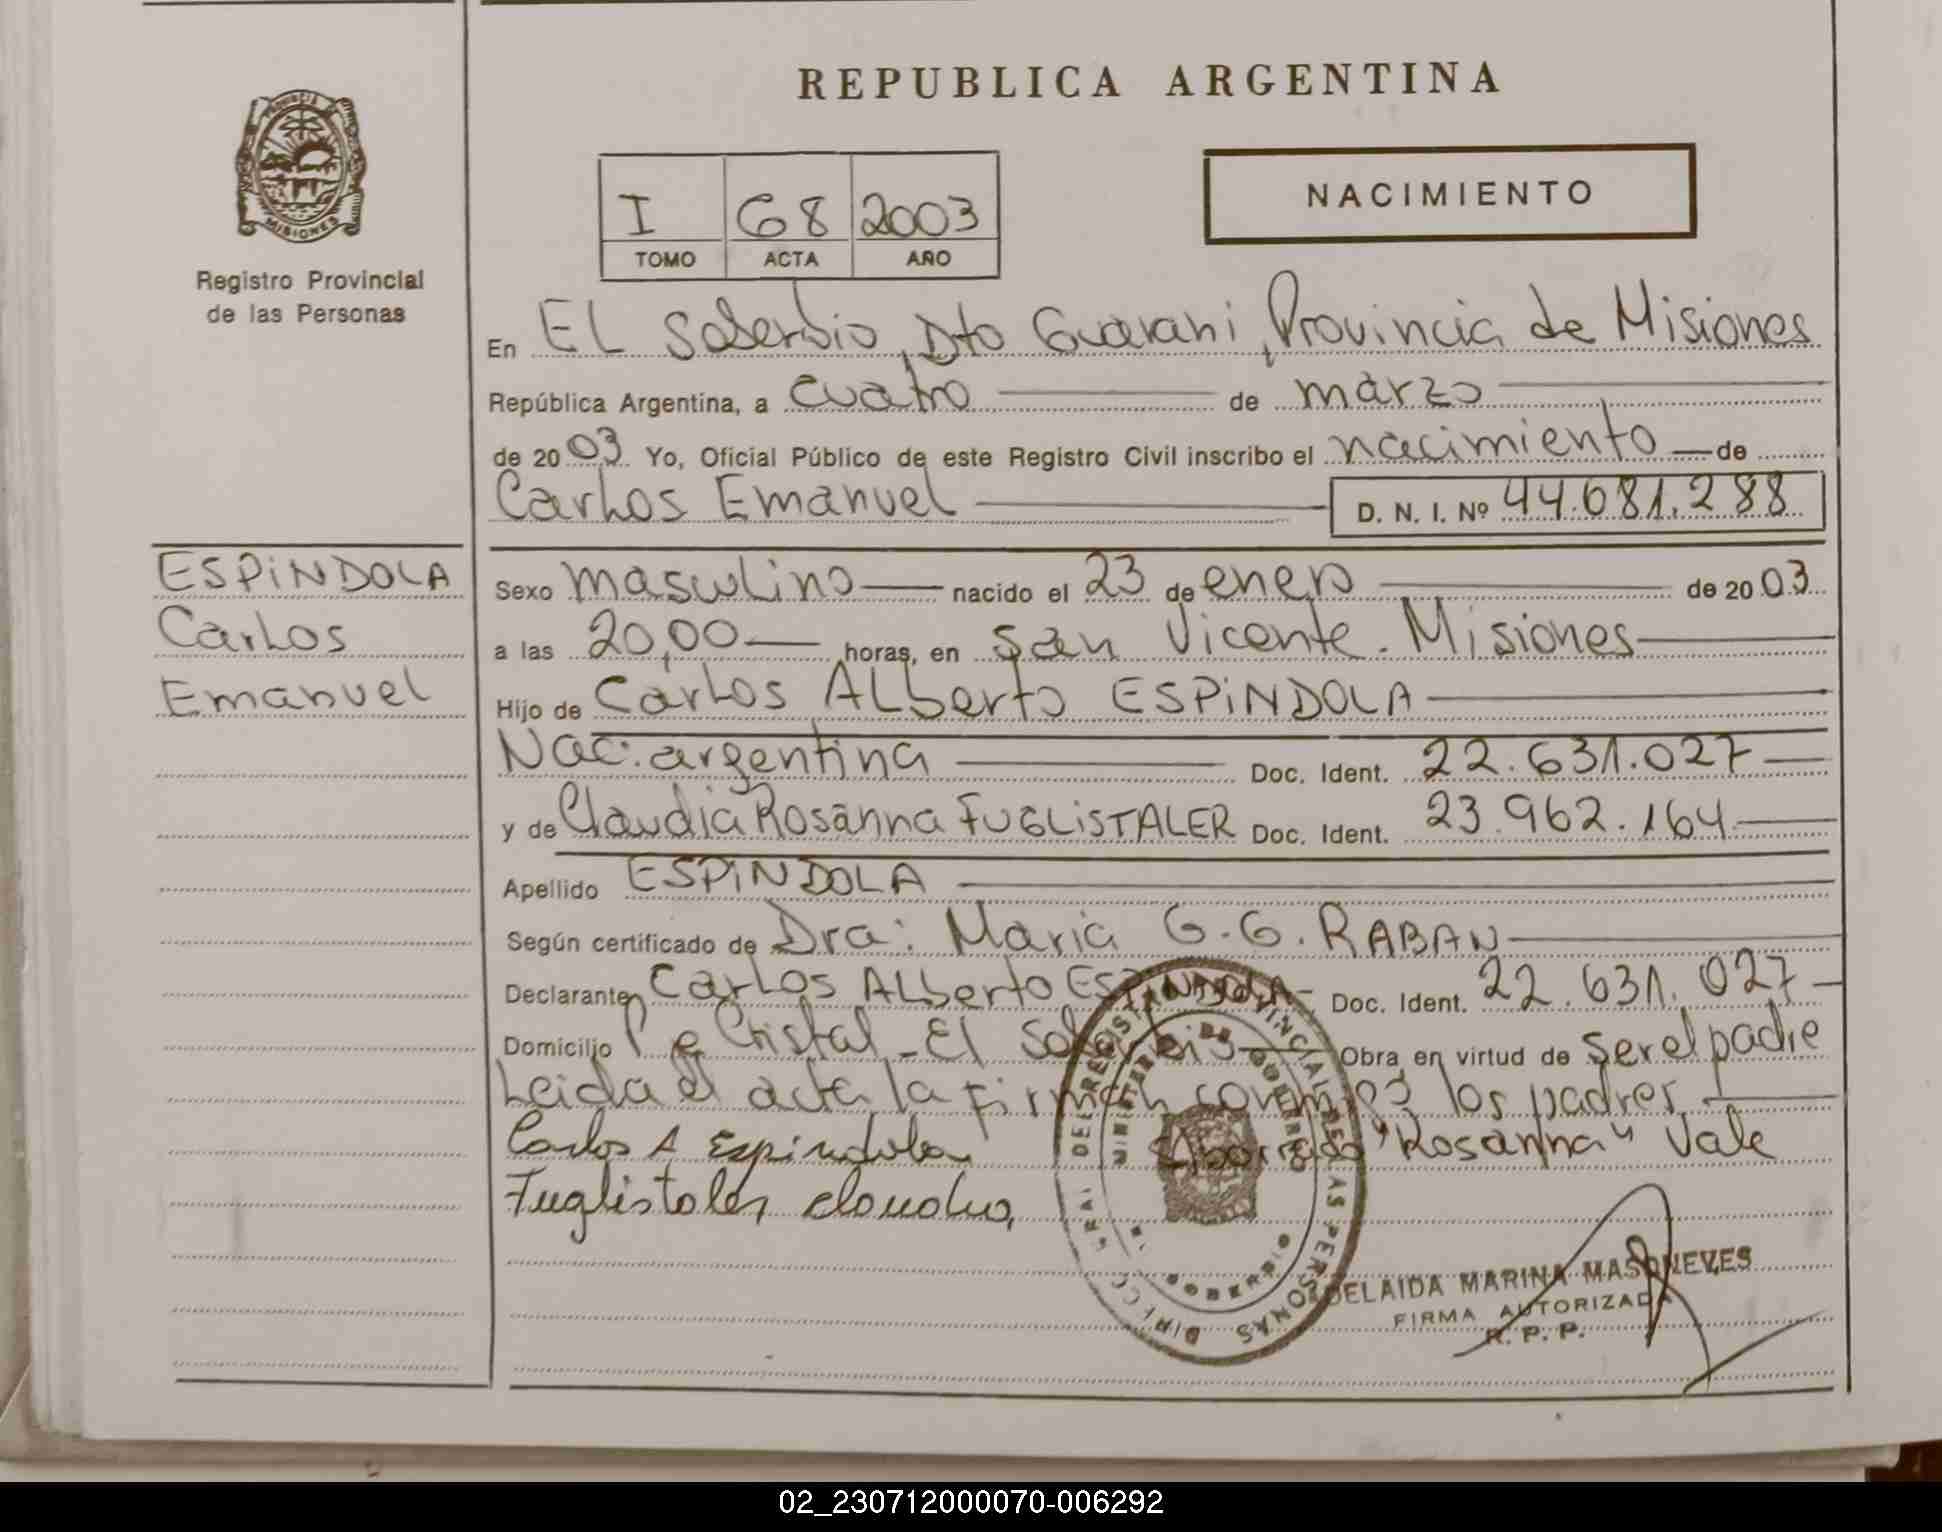 REPUBLICA ARGENTINA
PROVINCIA
MISIONES
Registro Provincial
de las Personas
I 68 2003
TOMO ACTA AÑO
NACIMIENTO
En EL Soberbio, Dto Guarani, Provincia de Misiones
República Argentina, a cuatro de marzo
de 2003 Yo, Oficial Público de este Registro Civil inscribo el nacimiento de
Carlos Emanuel D. N. I. Nº 44.681.288
ESPINDOLA
Carlos
Emanuel
Sexo masculino nacido el 23 de enero de 2003
a las 20,00 horas, en San Vicente. Misiones
Hijo de Carlos ALberto ESPINDOLA
Nac. argentina Doc. Ident. 22.631.027
y de Claudia Rosanna FUGLISTALER Doc. Ident. 23.962.164
Apellido ESPINDOLA
Según certificado de Dra: Maria G. G. RABAN
Declarante Carlos ALberto ESPINDOLA Doc. Ident. 22.631.027
Domicilio Pe Cristal - El Soberbio Obra en virtud de ser el padre
Leida el acta la firman los padres.
Carlos A Espindola "Rosanna" Vale
Fuglistaler claudia
DIRECC. GRAL DEL REGISTRO PROVINCIAL DE LAS PERSONAS
MINISTERIO DE GOBIERNO
GOBIERNO
ADELAIDA MARINA MASONEVES
FIRMA AUTORIZADA
R. P. P.
02_230712000070-006292